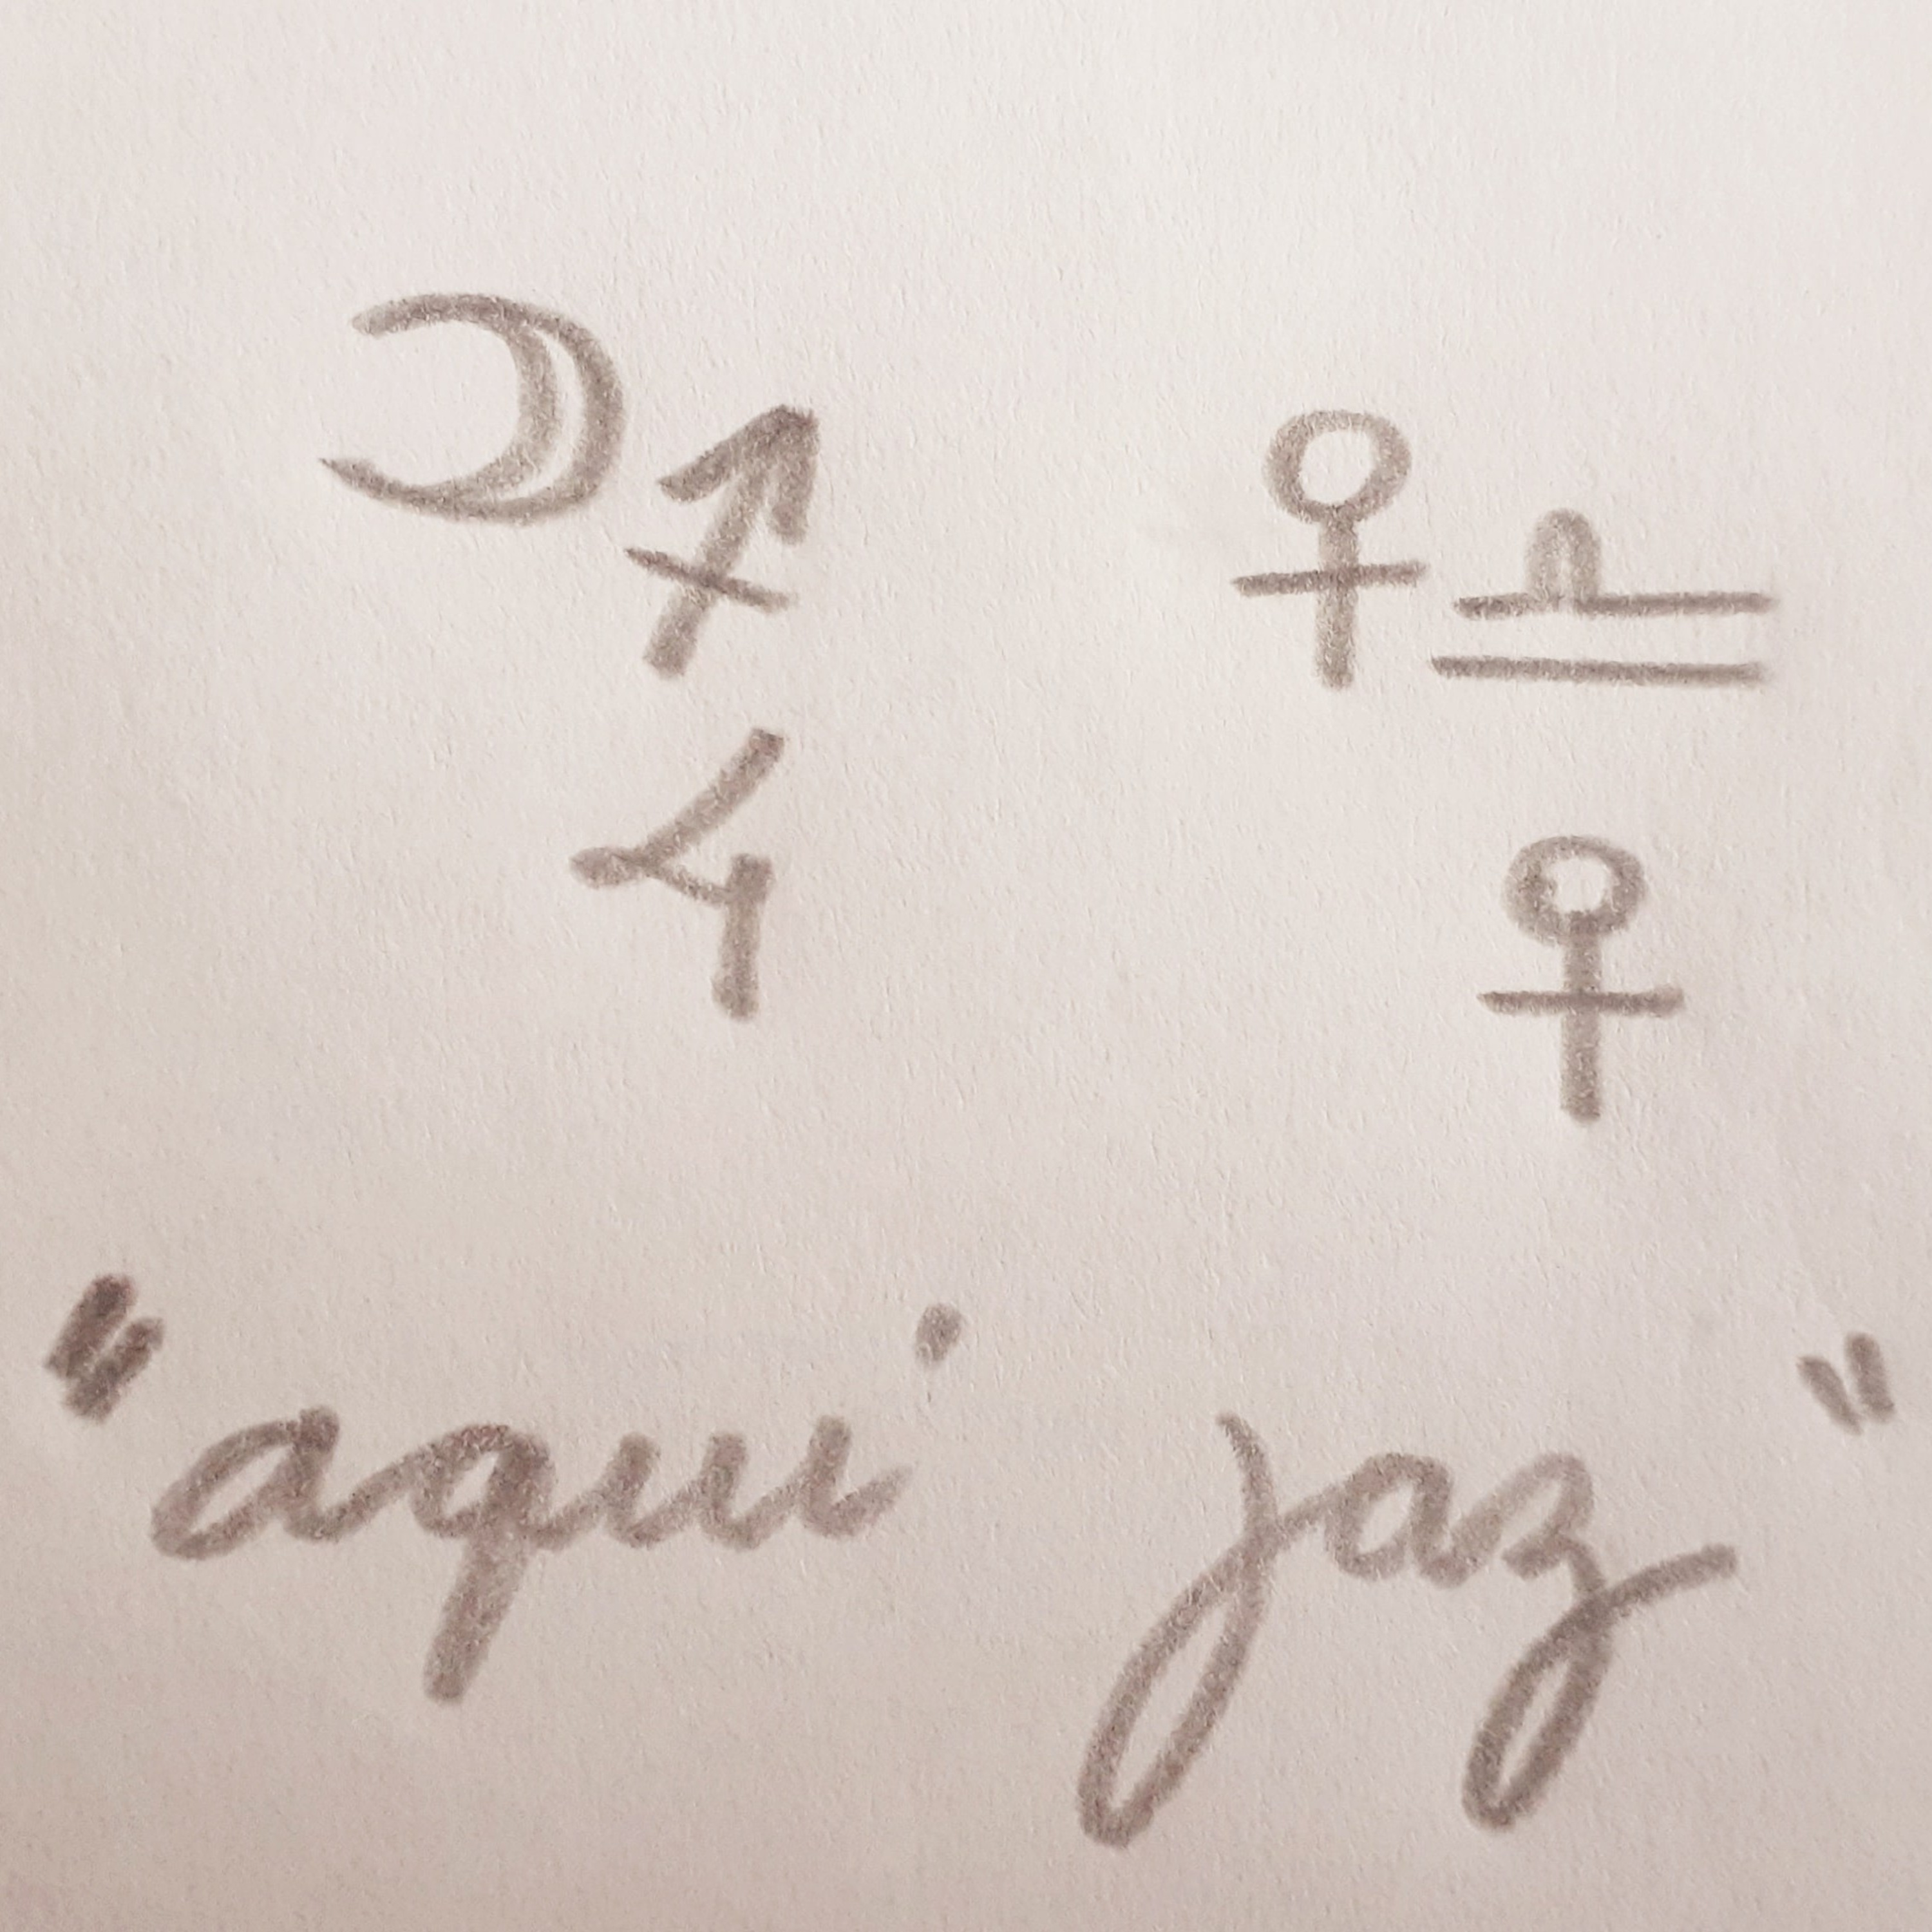 ☽♐ ♀♎
♃ ♀
"aqui jaz"